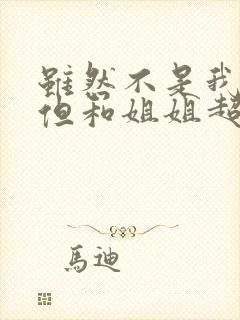 雖然不是我
但和姐姐超
馬迪